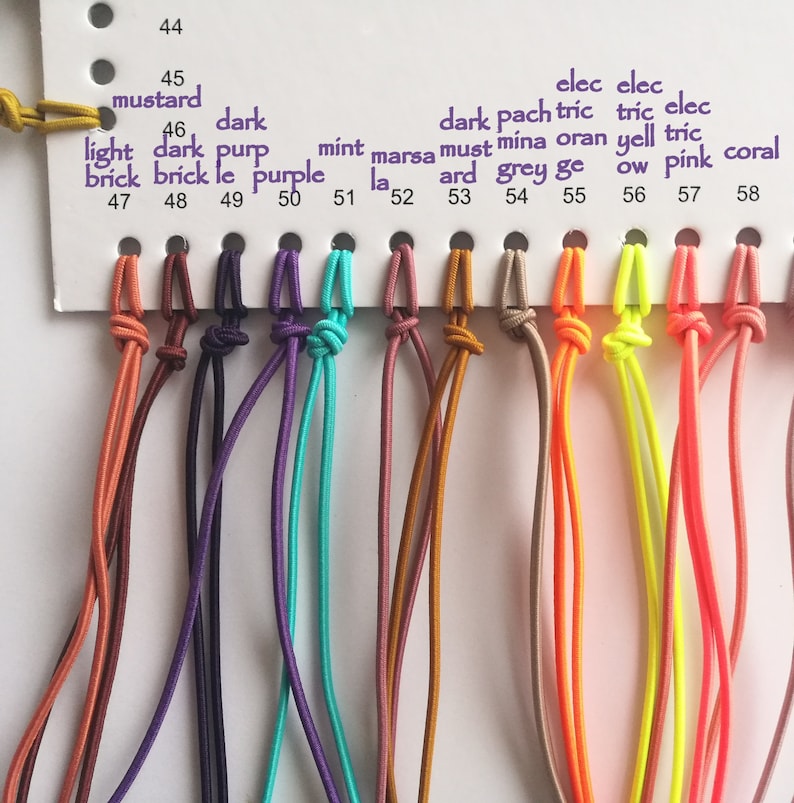 44
45
mustard
46
light
brick
47
dark
brick
48
dark
purp
le
49
purple
50
mint
51
marsa
la
52
dark
must
ard
53
pach
mina
grey
54
elec
tric
oran
ge
55
elec
tric
yell
ow
56
elec
tric
pink
57
coral
58